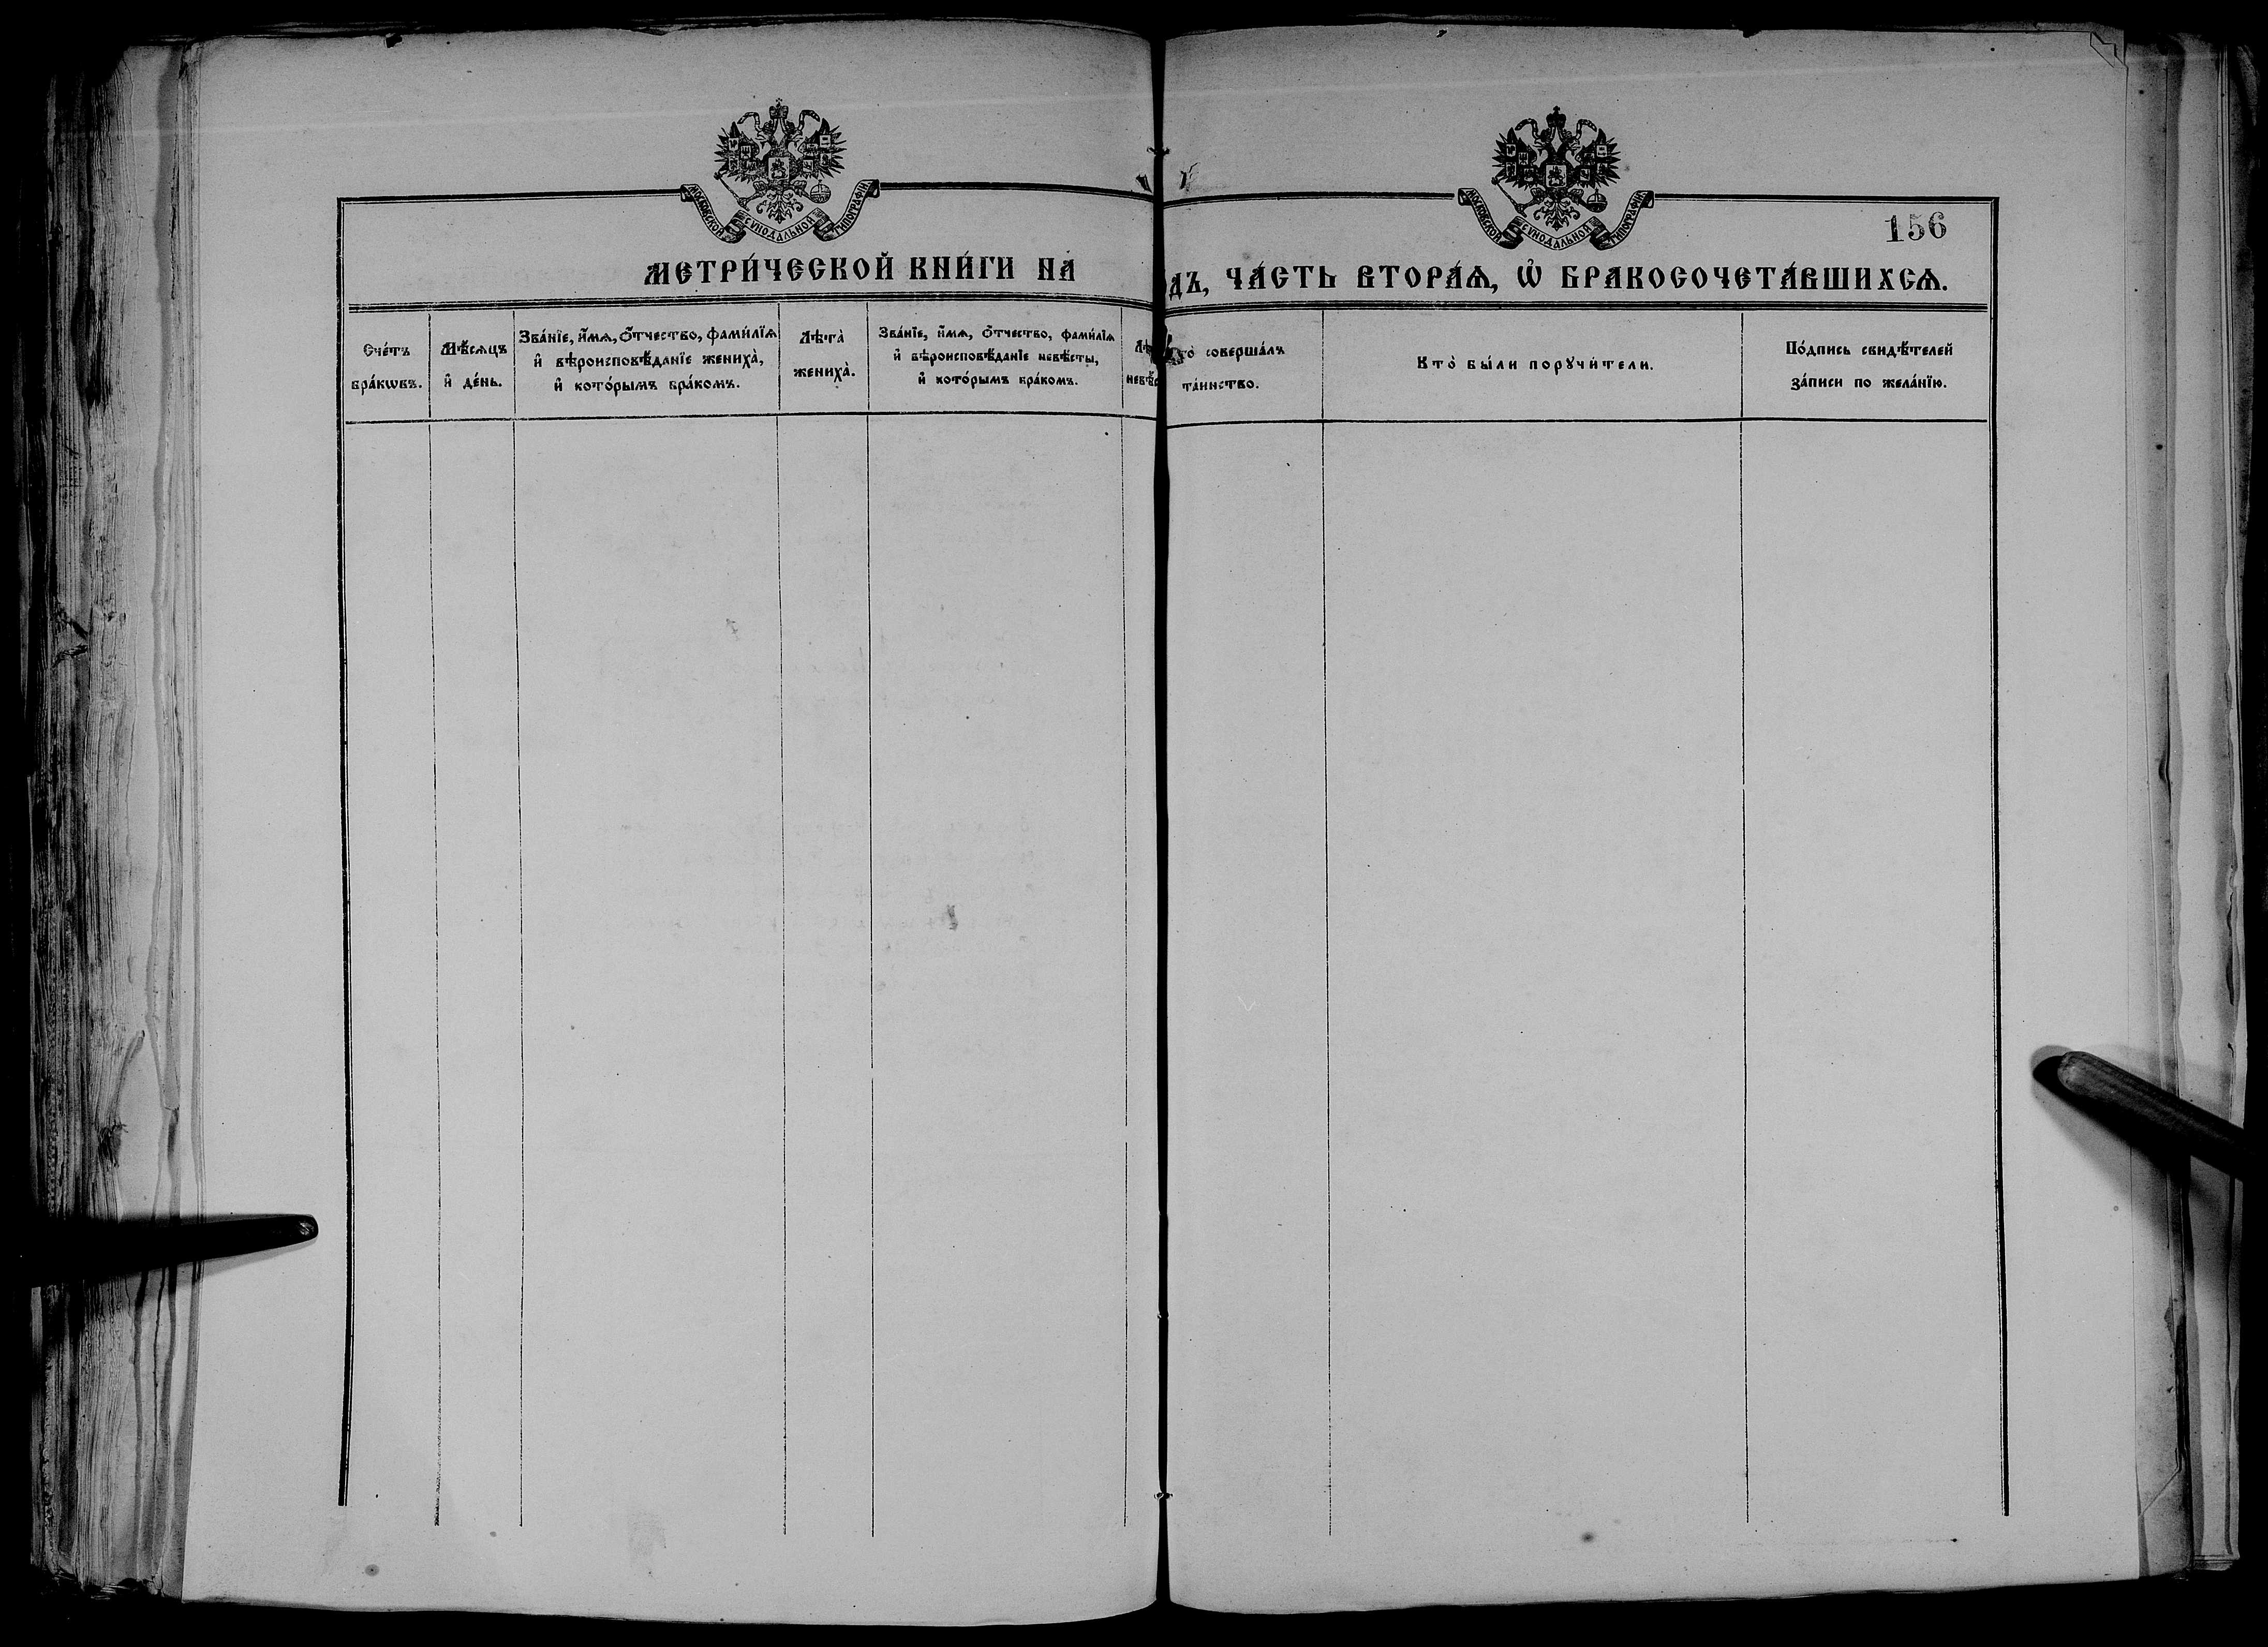 МОСКОВСКОЙ СѴНОДАЛЬНОЙ ТИПОГРАФІИ
МОСКОВСКОЙ СѴНОДАЛЬНОЙ ТИПОГРАФІИ
156
МЕТРИ́ЧЕСКОЙ КНИ́ГИ НА
ДЪ, ЧА́СТЬ ВТОРА́Ѧ, Ѡ҆ БРАКОСОЧЕТА́ВШИХСѦ.
Сче́тъ
бра́кѡвъ.
Мѣ́сяцъ
и҆ де́нь.
Зва́нїе, и҆́мѧ, ѻ҆́тчество, фами́лїѧ
и҆ вѣроисповѣ́данїе жениха̀,
и҆ кото́рымъ бра́комъ.
Лѣта̀
жениха̀.
Зва́нїе, и҆́мѧ, ѻ҆́тчество, фами́лїѧ
и҆ вѣроисповѣ́данїе невѣ́сты,
и҆ кото́рымъ бра́комъ.
Лѣ
невѣ́с
то̀ соверша́лъ
та́инство.
Кто̀ бы́ли порꙋчи́тели.
По́дпись свидѣ́телей
за́писи по жела́нїю.